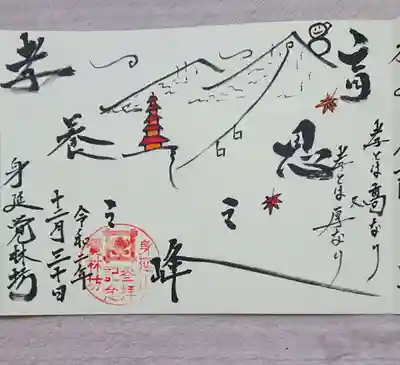 育恩之峰
孝とは高なり
又
孝とは厚なり
孝養之
令和二年
十二月三十日
身延覚林坊
登拝
記念